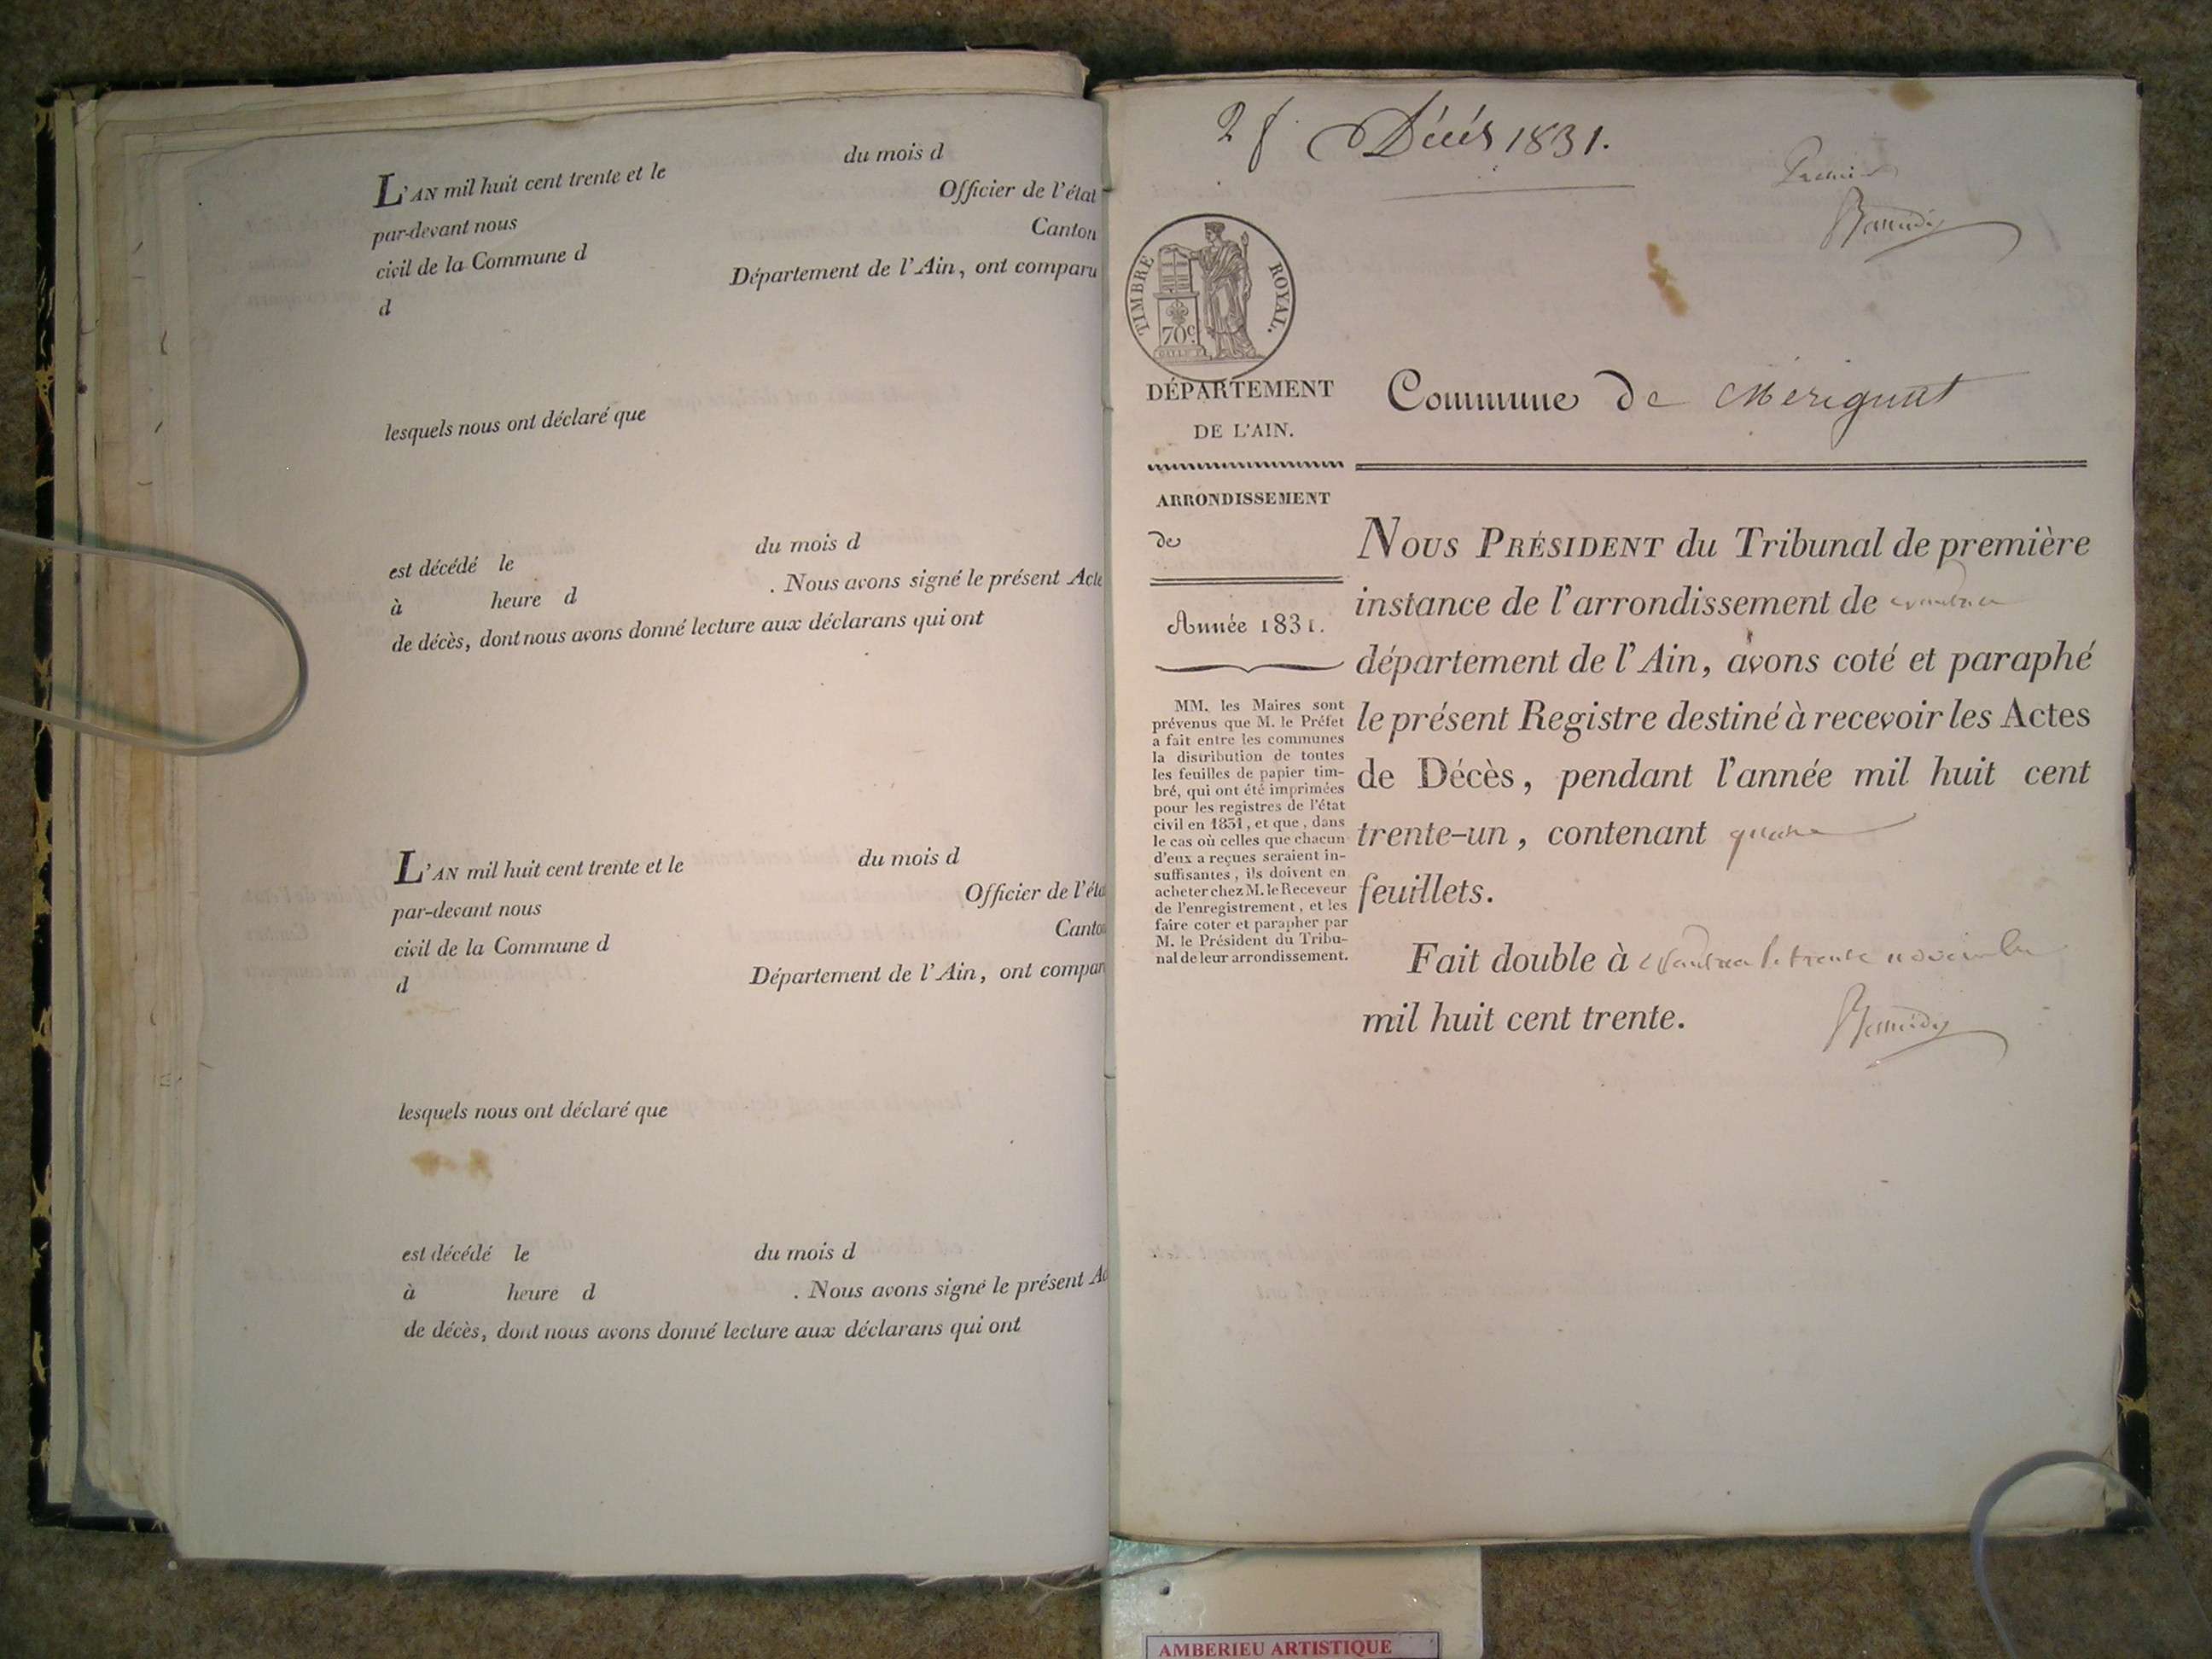 L'AN mil huit cent trente et le du mois d
par-devant nous Officier de l'état
civil de la Commune d Canton
d Département de l'Ain, ont comparu
lesquels nous ont déclaré que
est décédé le du mois d
à heure d . Nous avons signé le présent Acte
de décès, dont nous avons donné lecture aux déclarans qui ont
L'AN mil huit cent trente et le du mois d
par-devant nous Officier de l'éta
civil de la Commune d Canton
d Département de l'Ain, ont compar
lesquels nous ont déclaré que
est décédé le du mois d
à heure d . Nous avons signé le présent Ac
de décès, dont nous avons donné lecture aux déclarans qui ont
2 f. Décés 1831.
Premier
TIMBRE ROYAL.
70c.
DÉPARTEMENT
DE L'AIN.
Commune de Mérignat
ARRONDISSEMENT
de
Année 1831.
MM. les Maires sont
prévenus que M. le Préfet
a fait entre les communes
la distribution de toutes
les feuilles de papier tim-
bré, qui ont été imprimées
pour les registres de l'état
civil en 1831, et que, dans
le cas où celles que chacun
d'eux a reçues seraient in-
suffisantes, ils doivent en
acheter chez M. le Receveur
de l'enregistrement, et les
faire coter et parapher par
M. le Président du Tribu-
nal de leur arrondissement.
NOUS PRÉSIDENT du Tribunal de première
instance de l'arrondissement de
département de l'Ain, avons coté et paraphé
le présent Registre destiné à recevoir les Actes
de Décès, pendant l'année mil huit cent
trente-un, contenant quatre
feuillets.
Fait double à le trente novembre
mil huit cent trente.
AMBERIEU ARTISTIQUE